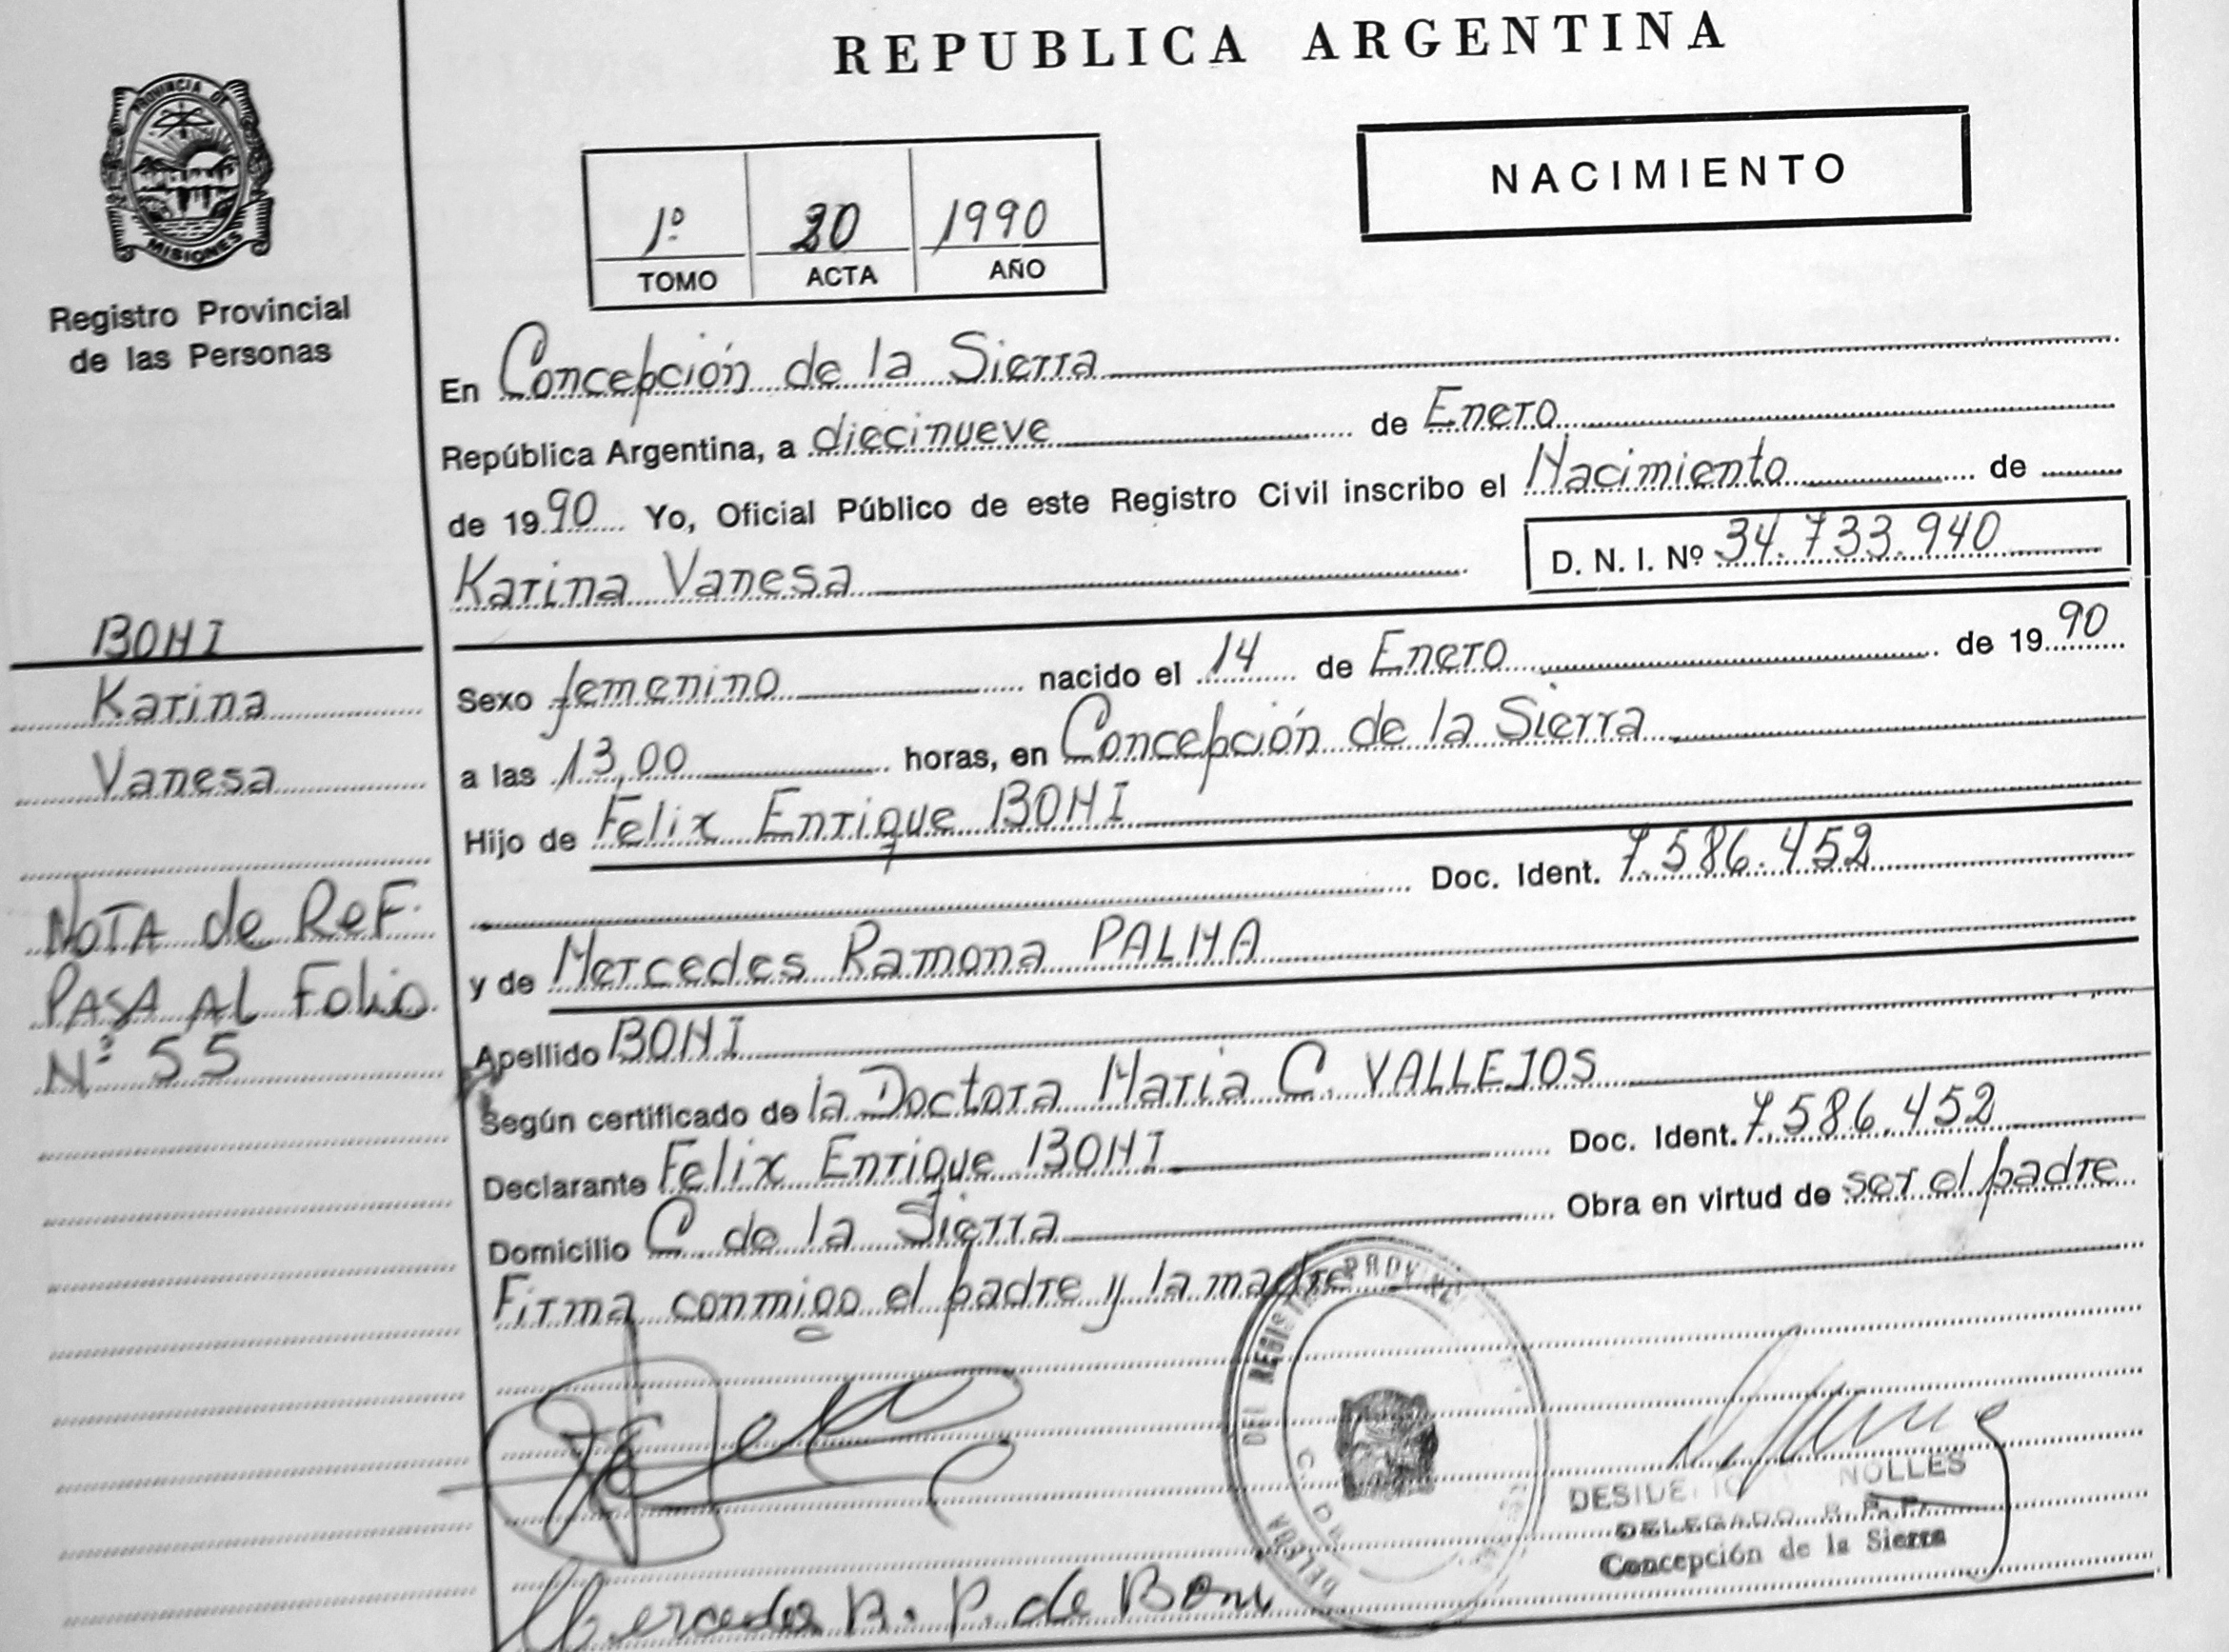 REPUBLICA ARGENTINA
PROVINCIA DE
MISIONES
Registro Provincial
de las Personas
NACIMIENTO
1º 20 1990
TOMO ACTA AÑO
En Concepción de la Sierra
República Argentina, a diecinueve de Enero
de 1990 Yo, Oficial Público de este Registro Civil inscribo el Nacimiento de
Karina Vanesa D. N. I. Nº 34.733.940
BONI
Karina
Vanesa
NOTA de REF.
PASA AL Folio
Nº 55
Sexo femenino nacido el 14 de Enero de 1990
a las 13,00 horas, en Concepción de la Sierra
Hijo de Felix Enrique BONI
Doc. Ident. 7.586.452
y de Mercedes Ramona PALMA
Apellido BONI
Según certificado de la Doctora Maria C. VALLEJOS
Declarante Felix Enrique BONI Doc. Ident. 7.586.452
Domicilio C. de la Sierra Obra en virtud de ser el padre
Firma conmigo el padre y la madre
DEL REGISTRO
NOLLES
DELEGADO R. P. P.
Concepción de la Sierra
Mercedes R. P. de Boni